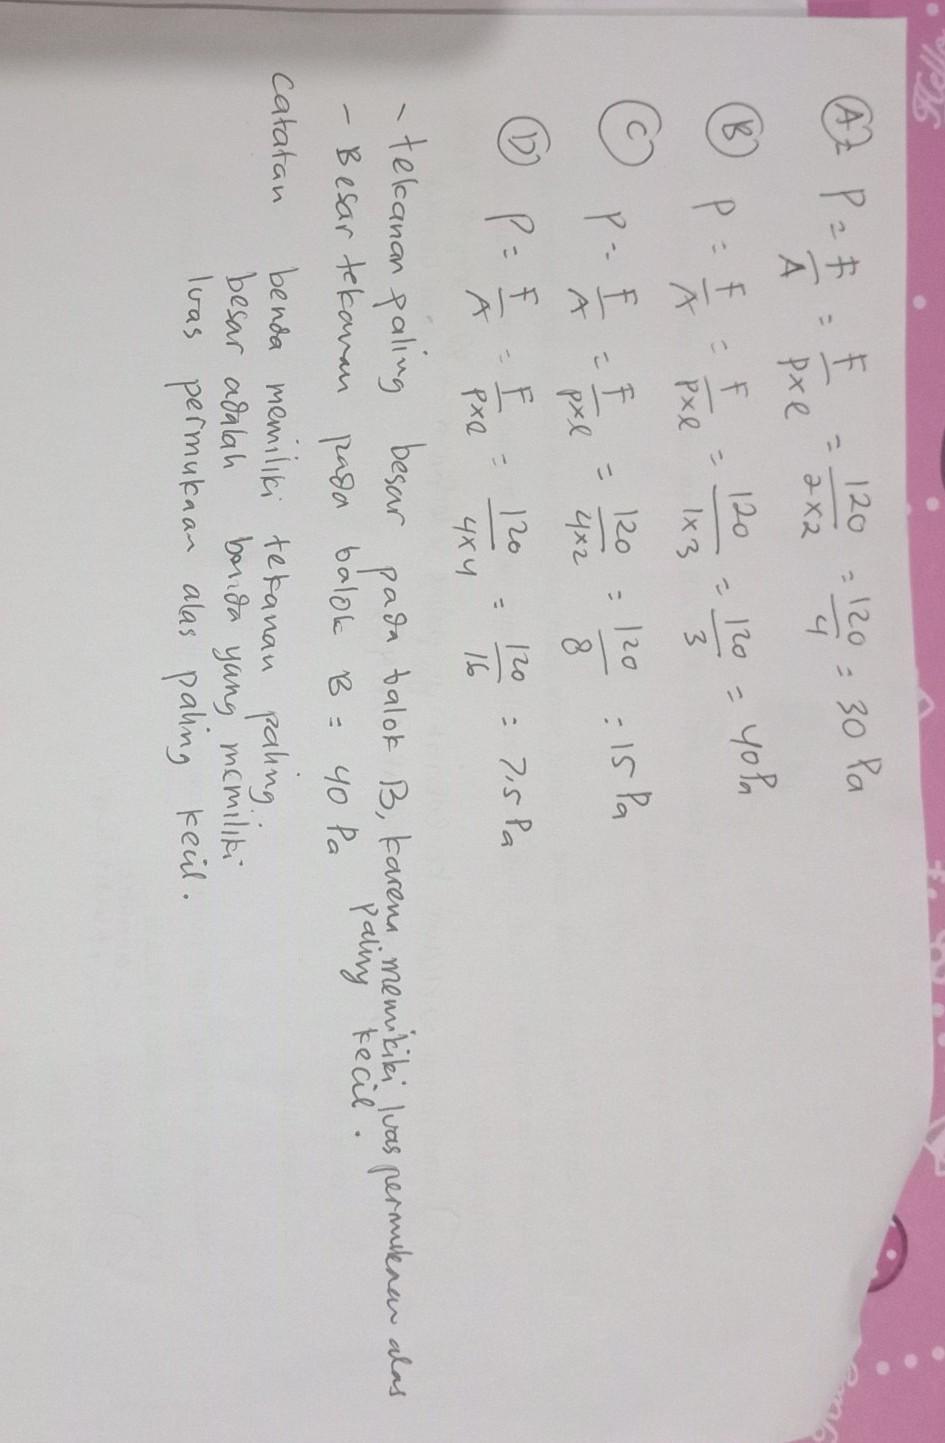 Hello
(A) P = F/A = F/pxl = 120/2x2 = 120/4 = 30 Pa
(B) P = F/A = F/pxl = 120/1x3 = 120/3 = 40 Pa
(C) P = F/A = F/pxl = 120/4x2 = 120/8 = 15 Pa
(D) P = F/A = F/pxl = 120/4x4 = 120/16 = 7,5 Pa
- tekanan paling besar pada balok B, karena memikiki luas permuknan alas
paling kecil.
- Besar tekanan pada balok B = 40 Pa
Catatan benda memiliki tekanan paling
besar adalah benda yang memiliki
luas permukaan alas paling kecil.